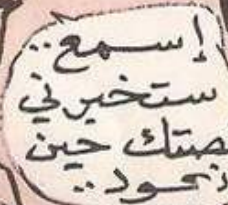 إسمع..
ستخبرني
بصتك حين
نعود..